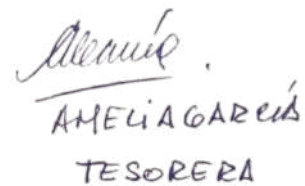 AMELIA GARCÍA
TESORERA